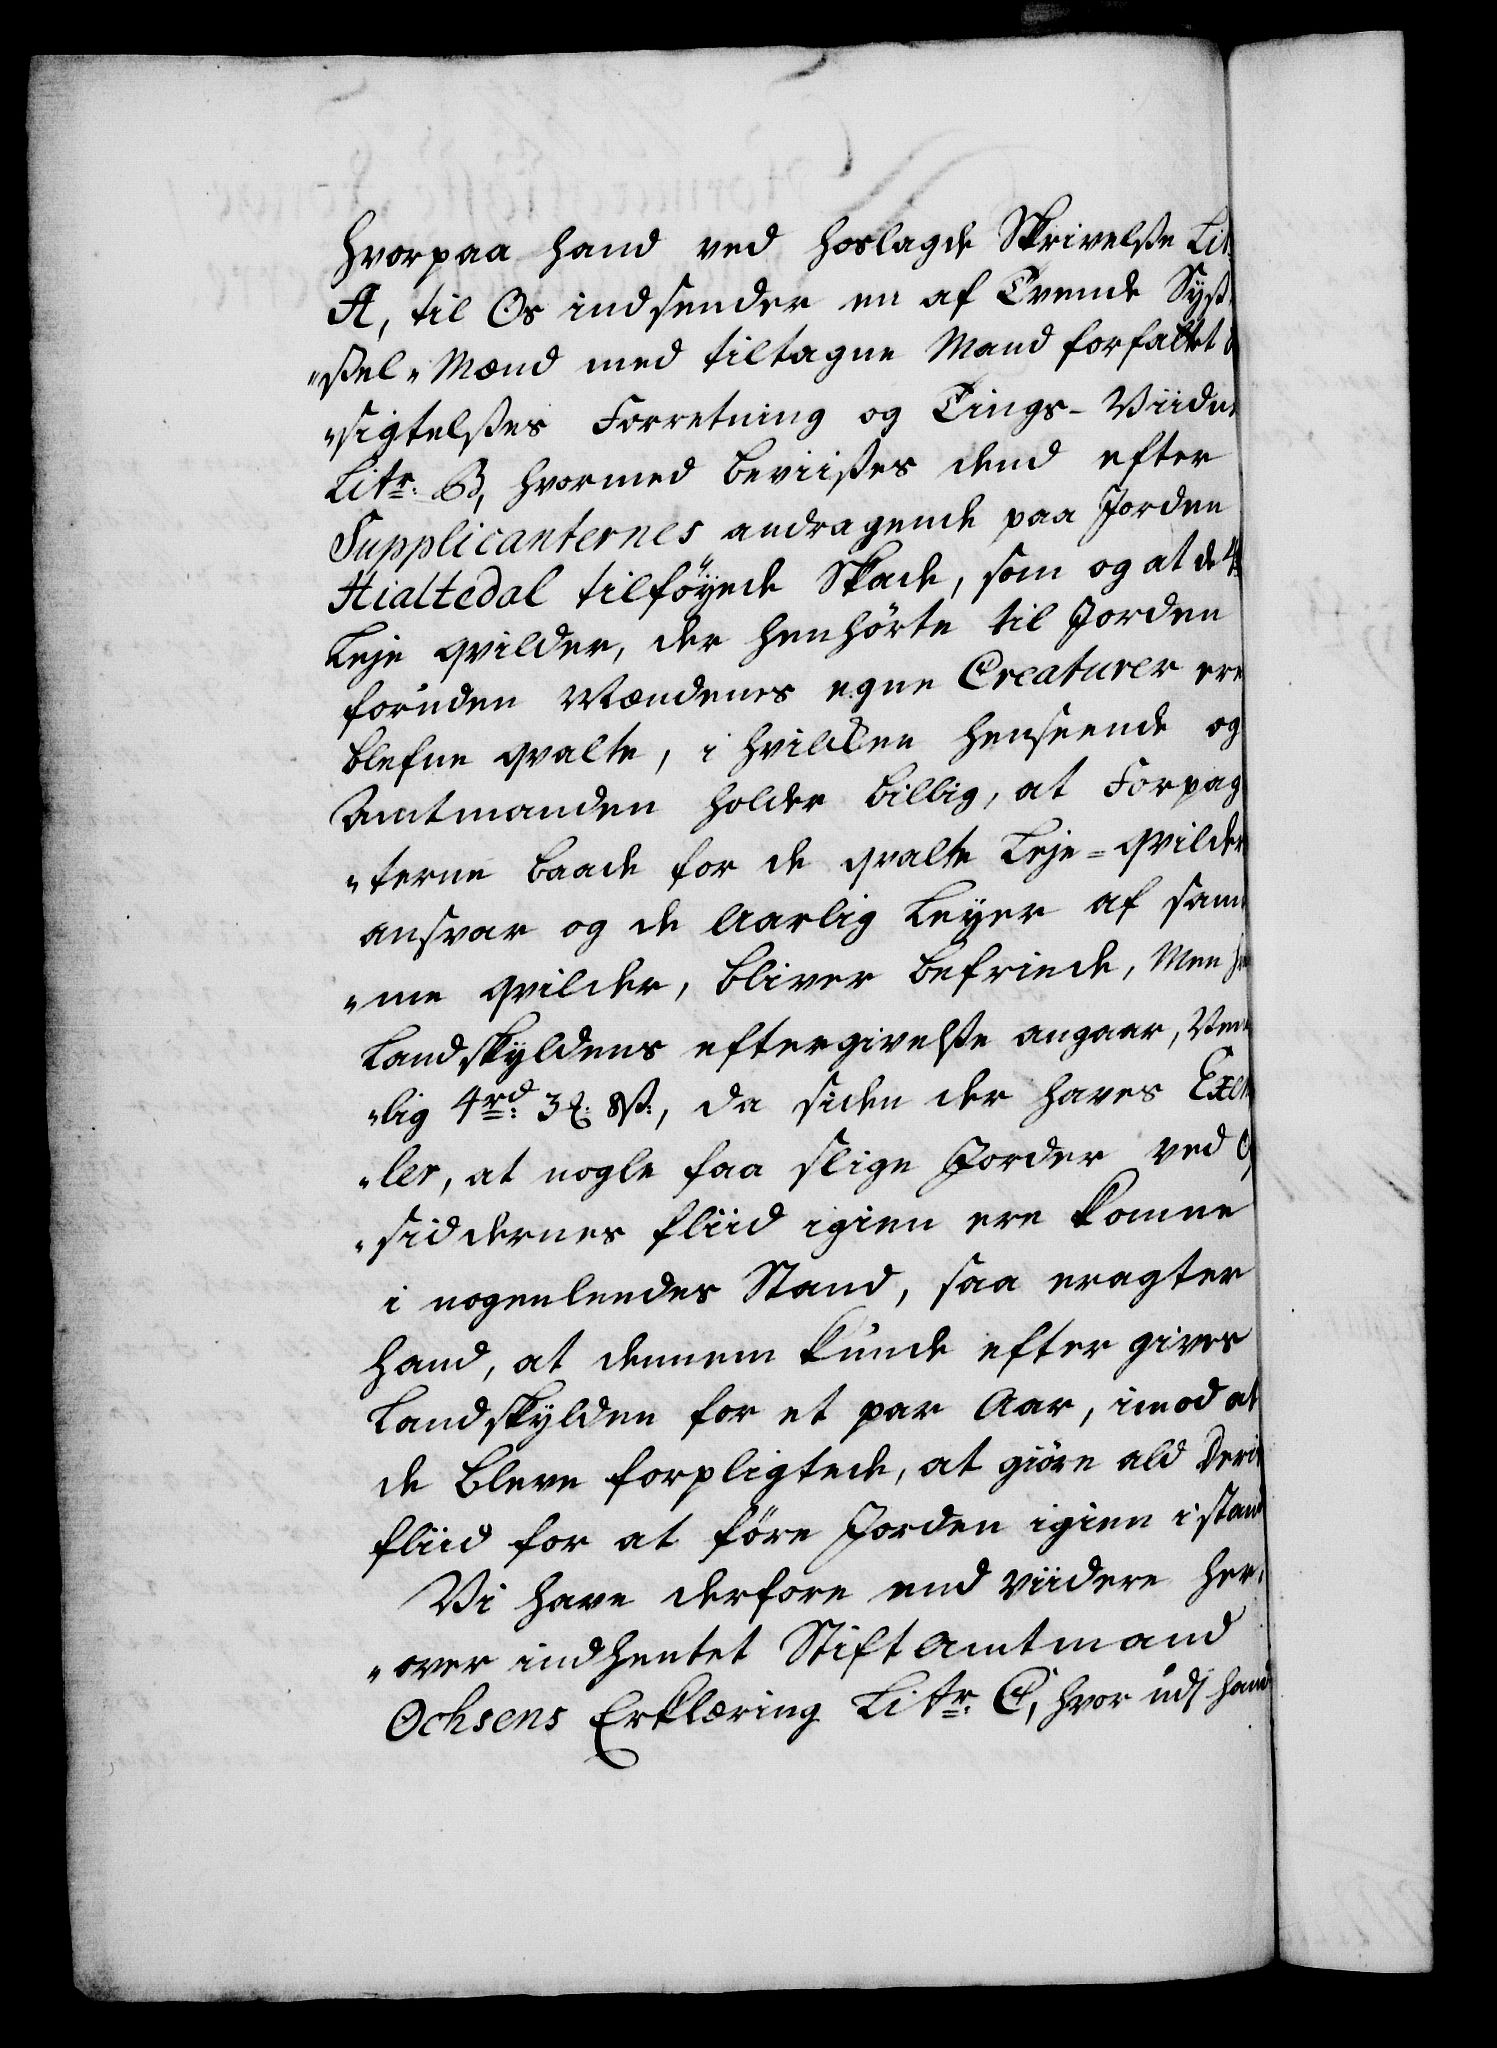 hvorpaa hand ved hoslagde Skrivelse Lit
A, til Os indsender en af Tvende Syss
"ssel-Mænd med tiltagne Mænd forfattet
"sigtelses Forretning og Tings-Viidne
Litr: B, hvormed beviises dend efter
Supplicanternes andragende paa Jorden
Hialtedal tilföyede Skade, som og at de 4
Leje qvilder, der henhörte til Jorden
foruden Mændenes egne Creaturer ere
blefne qvalte, i hvilcken henseende og
Amtmanden holder billig, at Forpag
"terne baade for de qvalte Leje-qvilders
ansvar og de Aarlig Leyer af sam
"me qvilder, bliver befriede, Men
Landskyldens eftergivelse angaar, Nem
"lig 4rd: 3 8ß:, da siden der haves Exem
"ler, at nogle faa slige Jorder ved O
"siddernes fliid igien ere komne
i nogenlendes Stand, saa eragter
hand, at dennem kunde efter gives
Landskylden for et par Aar, imod at
de bleve forpligtede, at giöre ald Deris
fliid for at före Jorden igien i stand
Vi have derfore end viidere her
"over indhentet Stiftamtmand
Ochsens Erklæring Litr: C, hvor udj hand